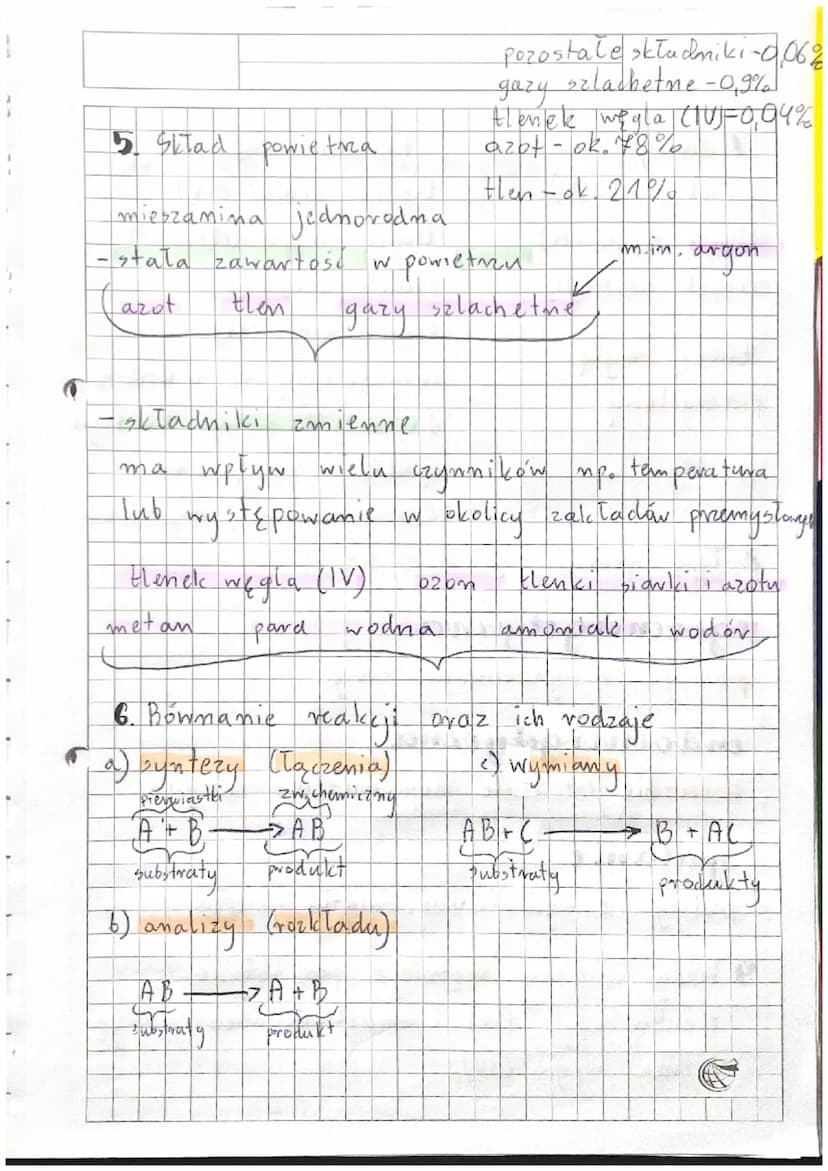 pozostałe składniki - 0,06%
gazy szlachetne - 0,9%
tlenek węgla (IV) = 0,04%
5. Skład powietrza
azot - ok. 78%
tlen - ok. 21%
mieszanina jednorodna
- stała zawartość w powietrzu
m.in. argon
azot tlen gazy szlachetne
- składniki zmienne
ma wpływ wielu czynników np. temperatura
lub występowanie w okolicy zakładów przemysłowych
tlenek węgla (IV) ozon tlenki siarki i azotu
metan para wodna amoniak wodór
6. Równanie reakcji oraz ich rodzaje
a) syntezy (łączenia) c) wymiany
pierwiastki zw. chemiczny
A + B → AB AB + C → B + AC
substraty produkt substraty produkty
b) analizy (rozkładu)
AB → A + B
substraty produkt